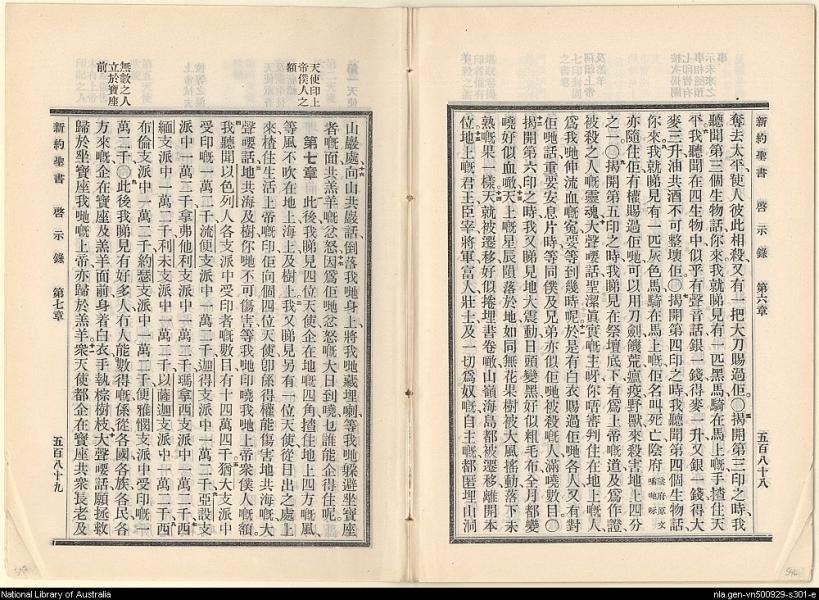 新約聖書 啓示錄 第六章 五百八十八
奪去太平使人彼此相殺又有一把大刀賜過佢〇揭開第三印之時我
聽聞第三個生物話你來我就睇見有一匹黑馬騎在馬上嘅手揸住天
平我聽聞在四生物中似乎有聲音話銀一錢得麥一升又銀一錢得大
麥三升油共酒不可整壞佢〇揭開第四印之時我聽聞第四個生物話
你來我就睇見有一匹灰色馬騎在馬上嘅佢名叫死亡陰府
亦隨住佢有權賜過佢哋可以用刀劍饑荒瘟疫野獸來殺害地上四分
之一〇揭開第五印之時我睇見在祭壇底下有爲上帝嘅道及爲作證
被殺之人嘅靈魂大聲嘜話聖潔眞實嘅主呀你唔審判住在地上嘅人
爲我哋伸流血嘅寃要等到幾時呢於是有白衣賜過佢哋各人又有對
佢哋話重要安息片時等同僕及兄弟亦似佢哋被殺嘅人滿嘵數目〇
揭開第六印之時我又睇見地大震動日頭變黑好似粗毛布全月都變
嘵好似血噉天上嘅星辰隕落於地如同無花果樹被大風搖動落下未
熟嘅果一樣天就被遷移好似捲埋書卷噉山嶺海島都被遷移離開本
位地上嘅君王臣宰將軍富人壯士及一切爲奴嘅自主嘅都匿埋山洞
山巖處向山共巖話倒落我哋身上將我哋藏埋喇等我哋躱避坐寶座
者嘅面共羔羊嘅忿怒因爲佢哋忿怒嘅大日到嘵乜誰能企得住呢
第七章 此後我睇見四位天使企在地嘅四角揸住地上四方嘅風
等風不吹在地上海上及樹上我又睇見另有一位天使從日出之處上
來揸住生活上帝嘅印佢向個四位天使卽係得權能傷害地共海嘅大
聲嘜話地共海及樹你哋不可傷害等我哋印嘵我哋上帝衆僕人嘅額
我聽聞以色列人各支派中受印者嘅數目有十四萬四千猶大支派中
受印嘅一萬二千流便支派中一萬二千迦得支派中一萬二千亞設支
派中一萬二千拿弗他利支派中一萬二千瑪拿西支派中一萬二千西
緬支派中一萬二千利未支派中一萬二千以薩迦支派中一萬二千西
布倫支派中一萬二千約瑟支派中一萬二千便雅憫支派中受印嘅一
萬二千〇此後我睇見有好多人冇人能數得嘅係從各國各族各民各
方來嘅企在寶座及羔羊面前身着白衣手執棕樹枝大聲嘜話願拯救
歸於坐寶座我哋嘅上帝亦歸於羔羊衆天使都企在寶座共衆長老及
天使印上
帝僕人之
額
無數之人
立於寶座
前
新約聖書 啓示錄 第七章 五百八十九
National Library of Australia
nla.gen-vn500929-s301-e